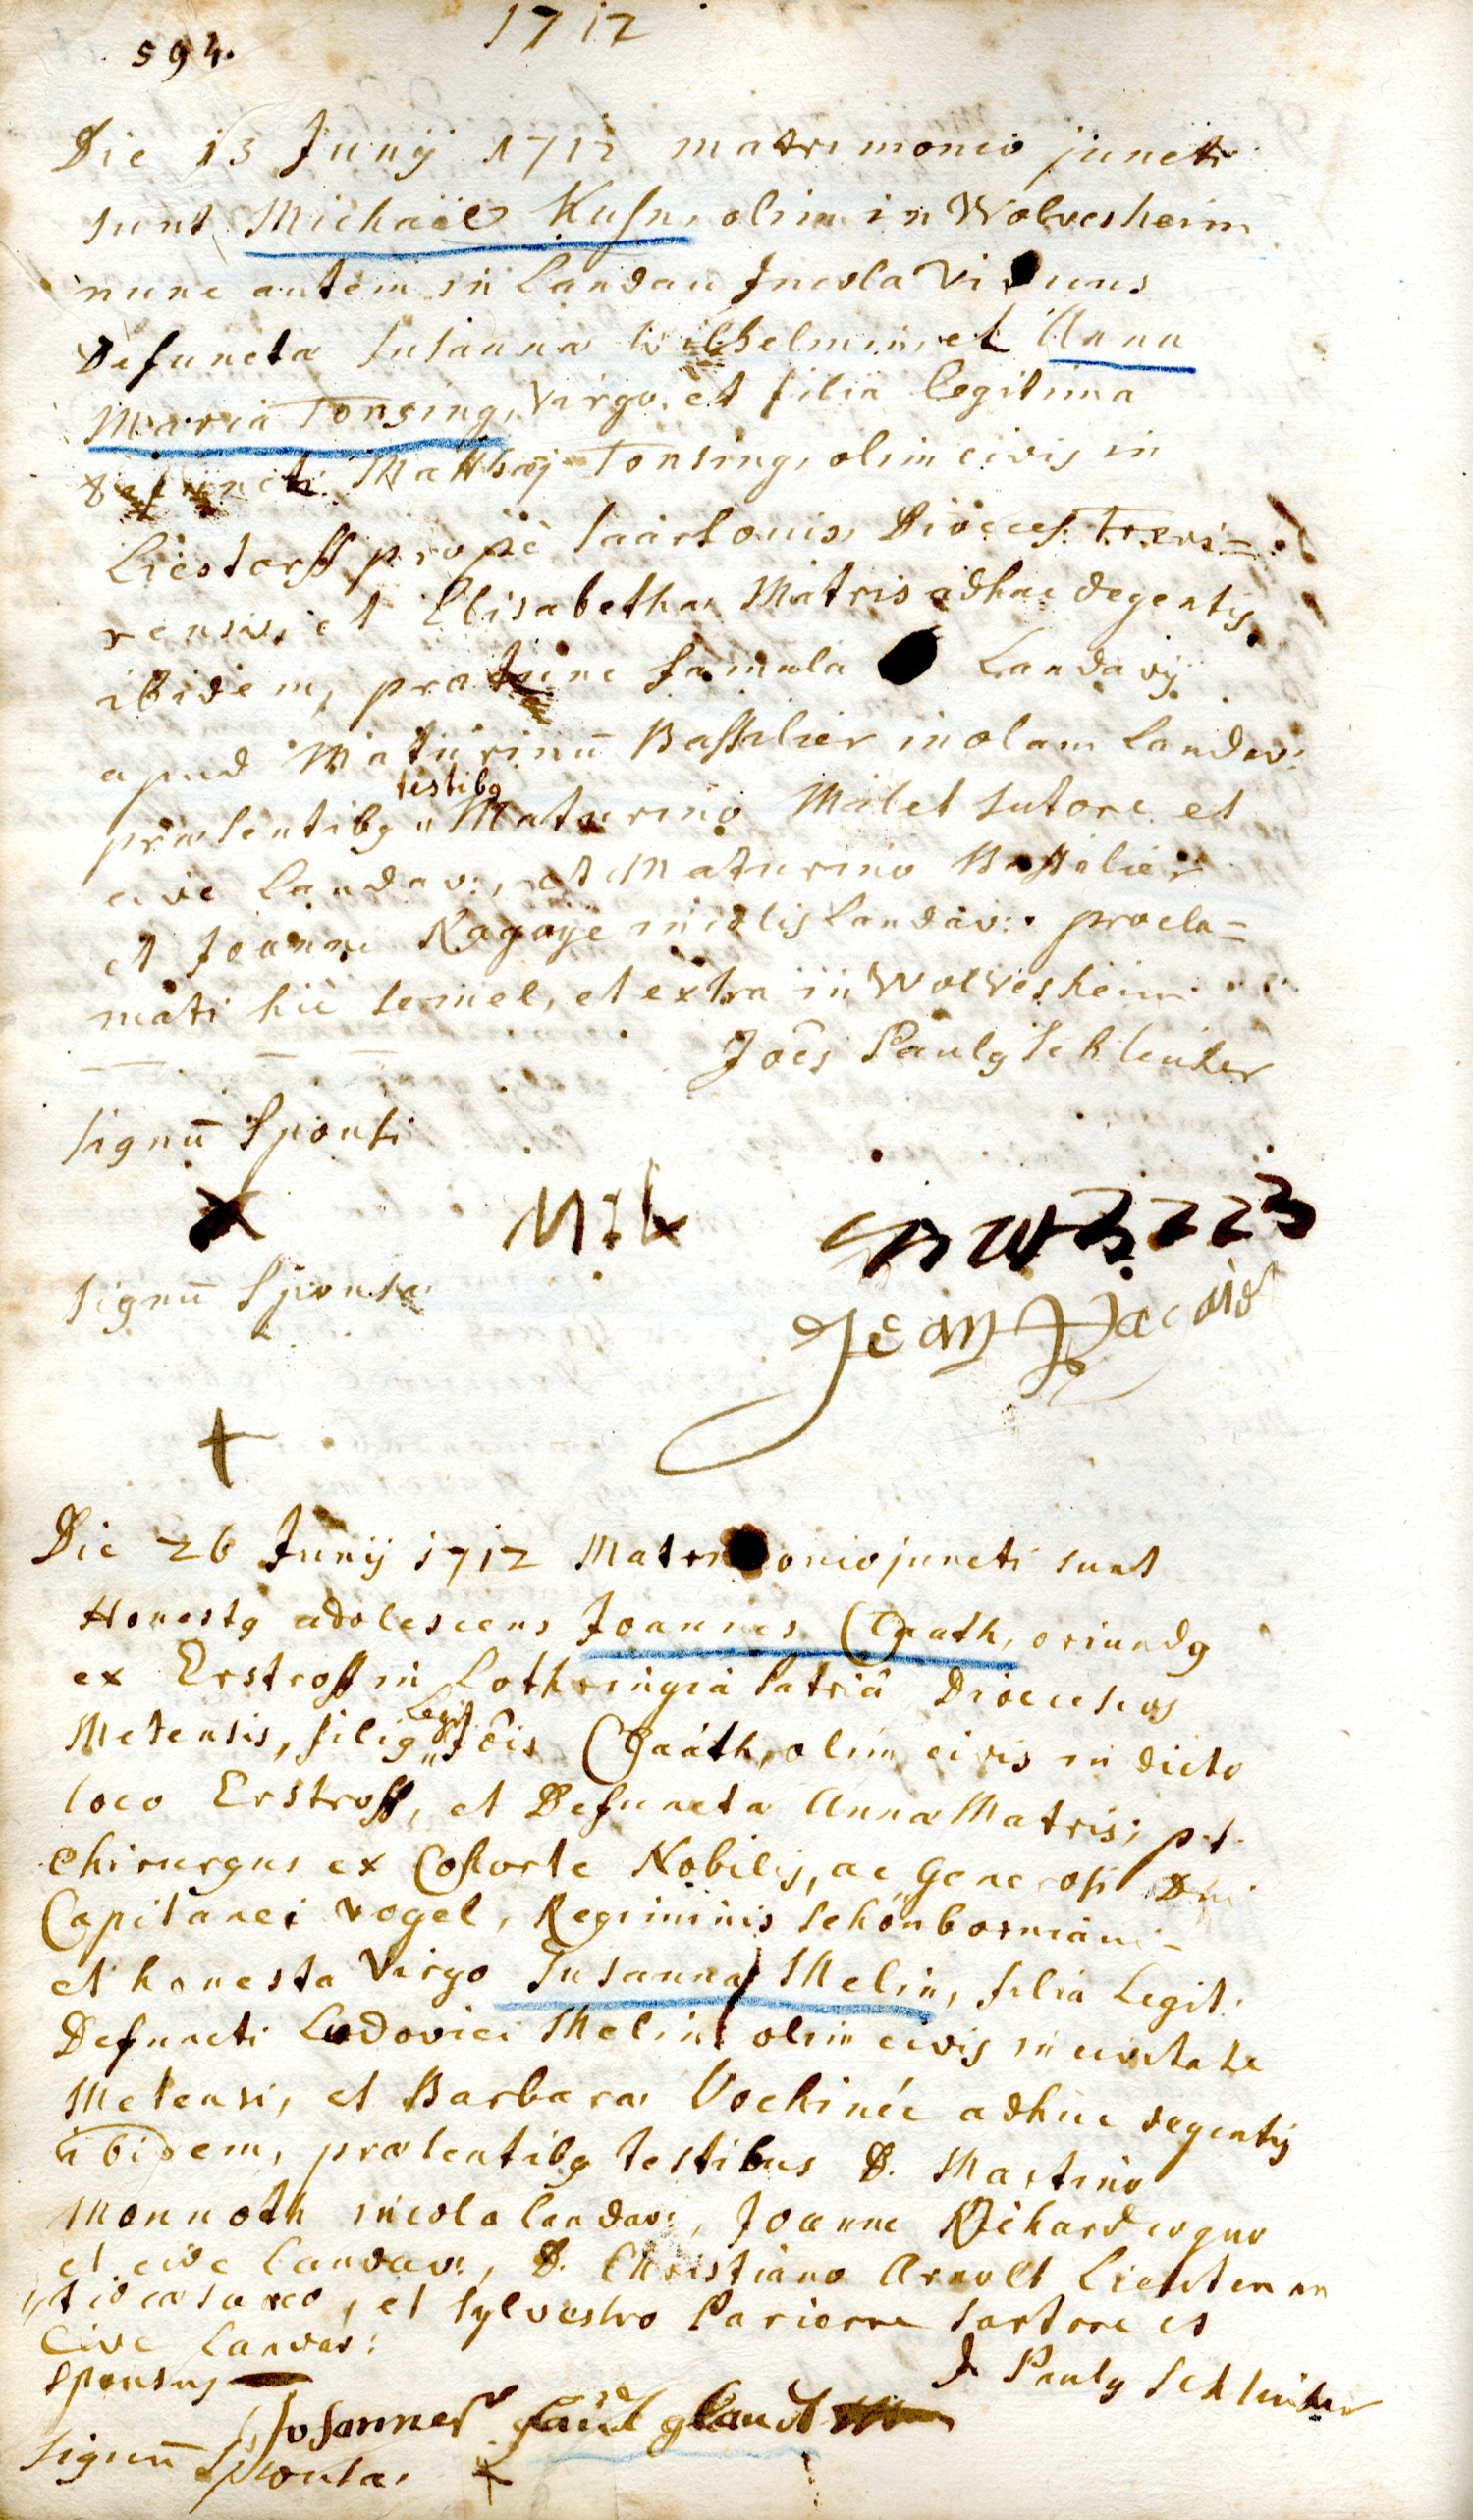 594.
1712
Die 13 Junij 1712 matrimonio juncti
sunt Michaël Kuhn, olim in Wolvesheim
nunc autem in Landau Incola Viduus
Defunctæ Susannæ Wilhelmin, et Anna
Maria Tonsing, Virgo, et filia legitima
defuncti Matthæj Tonsing, olim civis in
Liestorff propè Saarlouis, Dioeces: Trevi=
rensis, et Elisabethæ Matris adhuc degentis
ibidem, pro tunc famula Landavij
apud Maturinū Bastilier incolam Landav:
præsentibg " testibg Maturino Milet sutore et
cive Landav:, et Maturino Bastilier
et Joanne Ragaye incolis Landav: procla=
mati hic semel, et extra in Wolvesheim
Joēs Paulg Schlinker
Signū Sponsi
x
Signū Sponsæ
Jean
+
Die 26 Junij 1712 Matrimonio juncti sunt
Honestg adolescens Joannes Gaath, oriundg
ex Erstroff in Lothringiâ Patriâ Dioeceseos
Metensis, filig " Legit. Jōis Gaáth, olim civis in dicto
loco Erstroff, et Defunctæ Annæ Matris; p.t.
Chirurgus ex Cohorte Nobilis, ac Generosi Dni
Capitanei Vogel, Regiminis Schönborniani=
et honesta Virgo Susanna Melin, filia Legit.
Defuncti Ludovici Melin olim civis in civitate
Metensi, et Barbaræ Vochinée adhuc degentis
ibidem, præsentibg testibus D. Martino
Monnoth incola Landav:, Joanne Richard
et cive Landav:, D. Christiano Arnolt
et Sylvestro Parierre sartore et
Cive Landav:
J. Paulg Schlinker
Sponsus
Johannes
Signū Sponsæ +